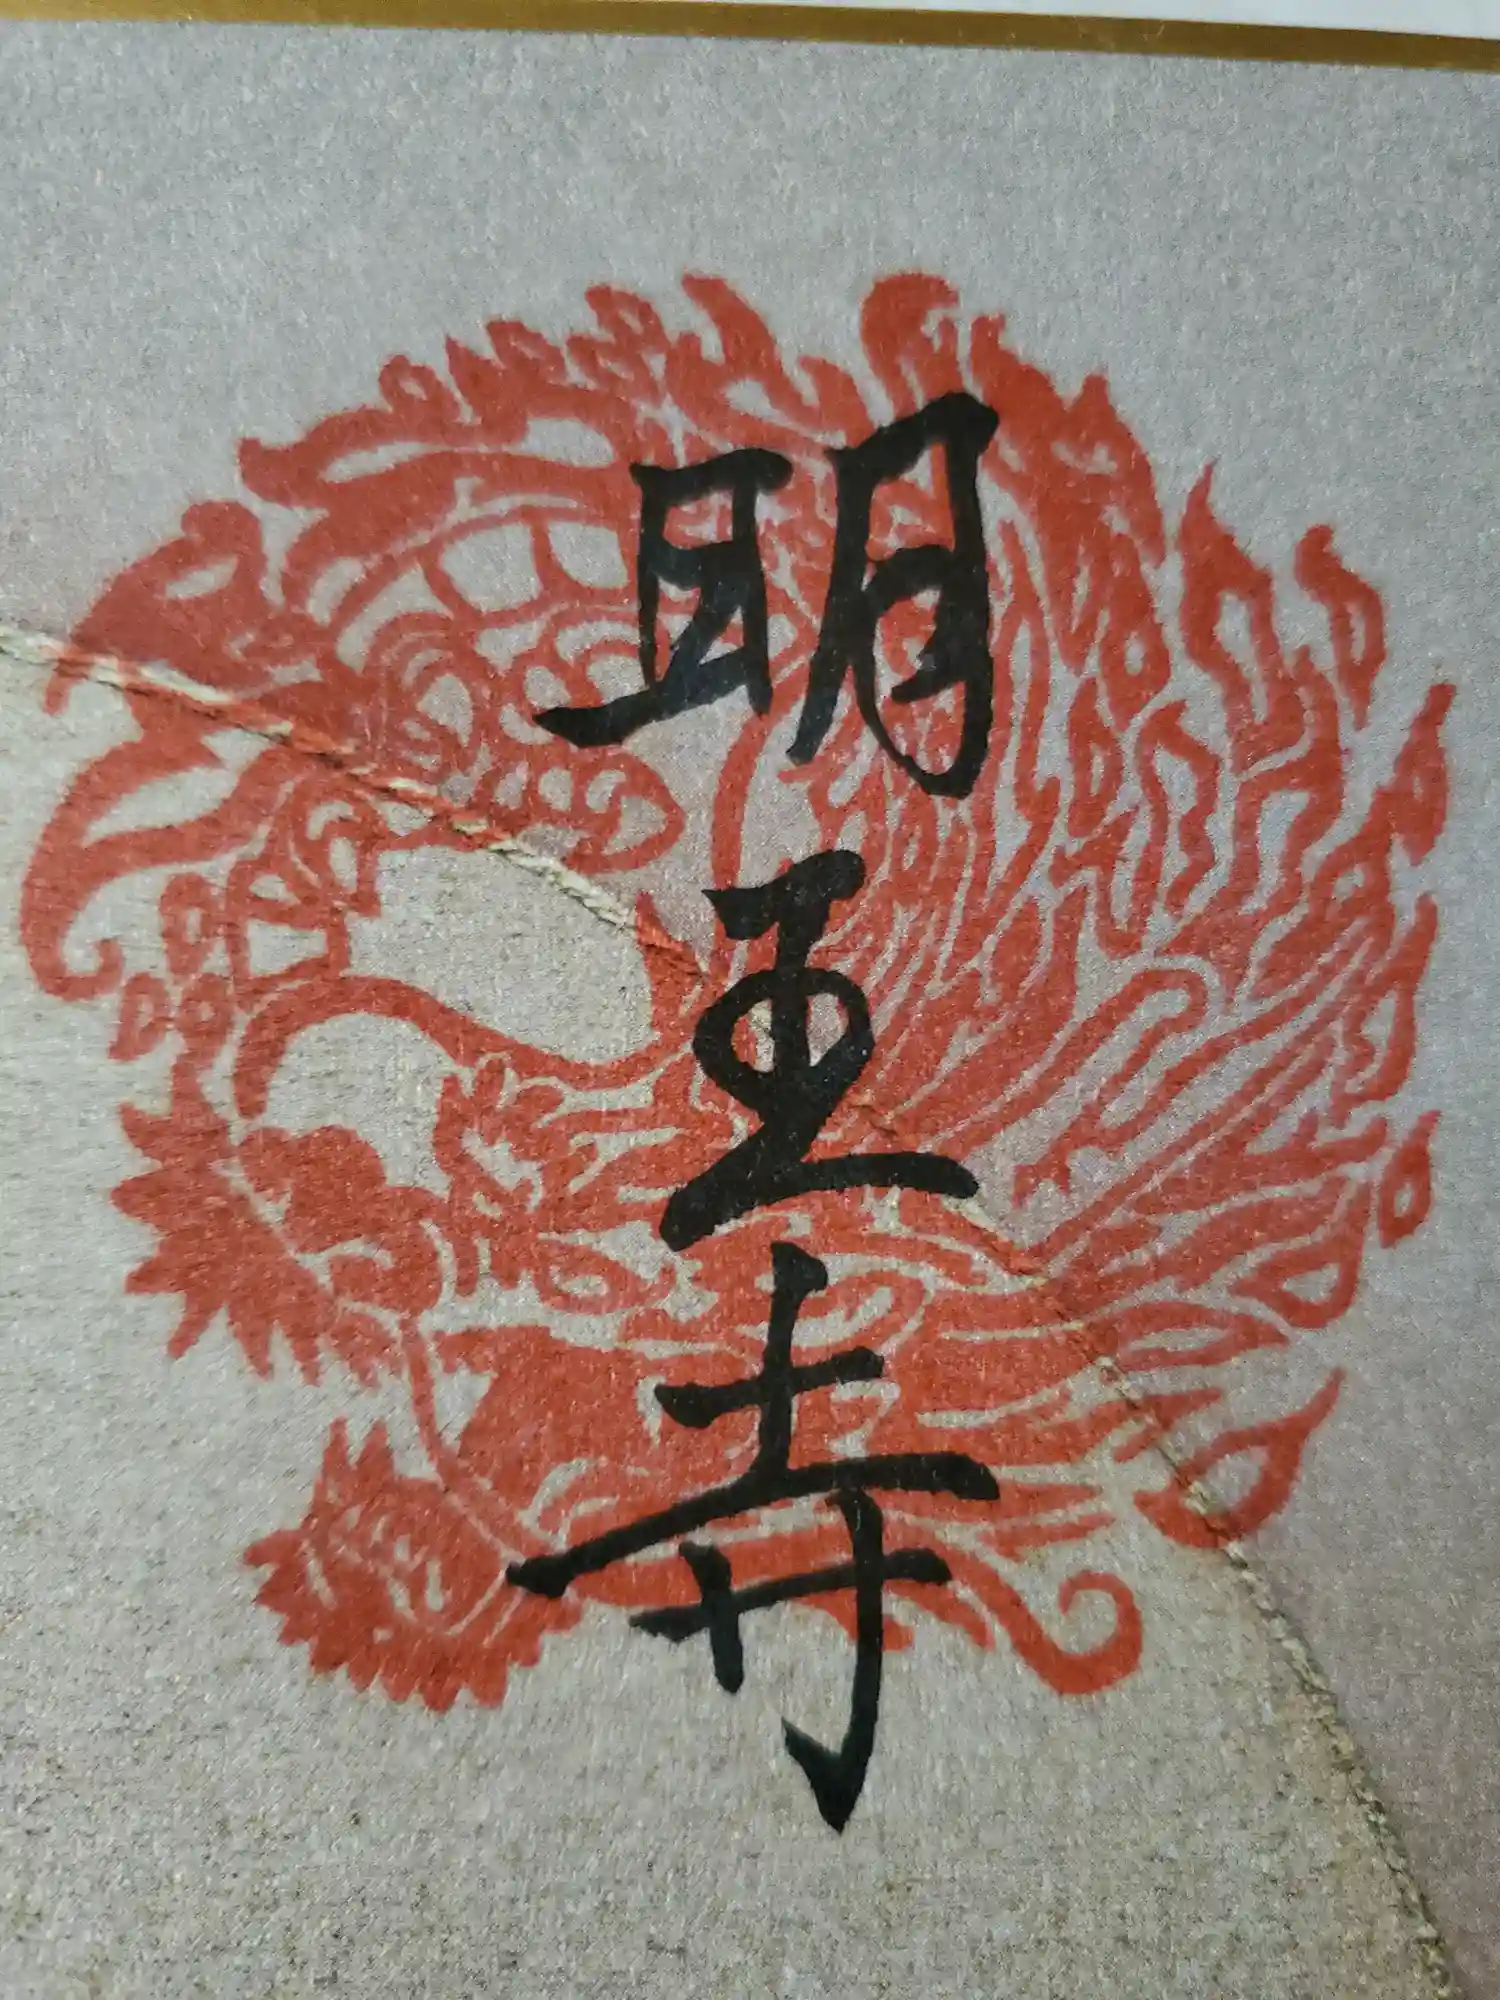 明王寺